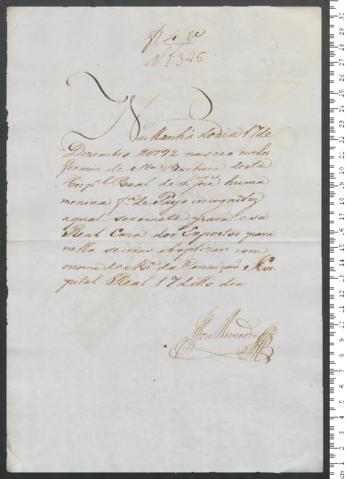 N 1326
Na Manhã do dia 17 de
Dezembro de 1792 nasceo na En
fermria de Sta Barbara deste
Hospl Real de S. José huma
menina fa de Pays incognitos
aqual se remete para essa
Real Caza dos Expostos para
nella se criar e baptizar com
o nome de Ma da Conceição Hos
pital Real 17 dito dia